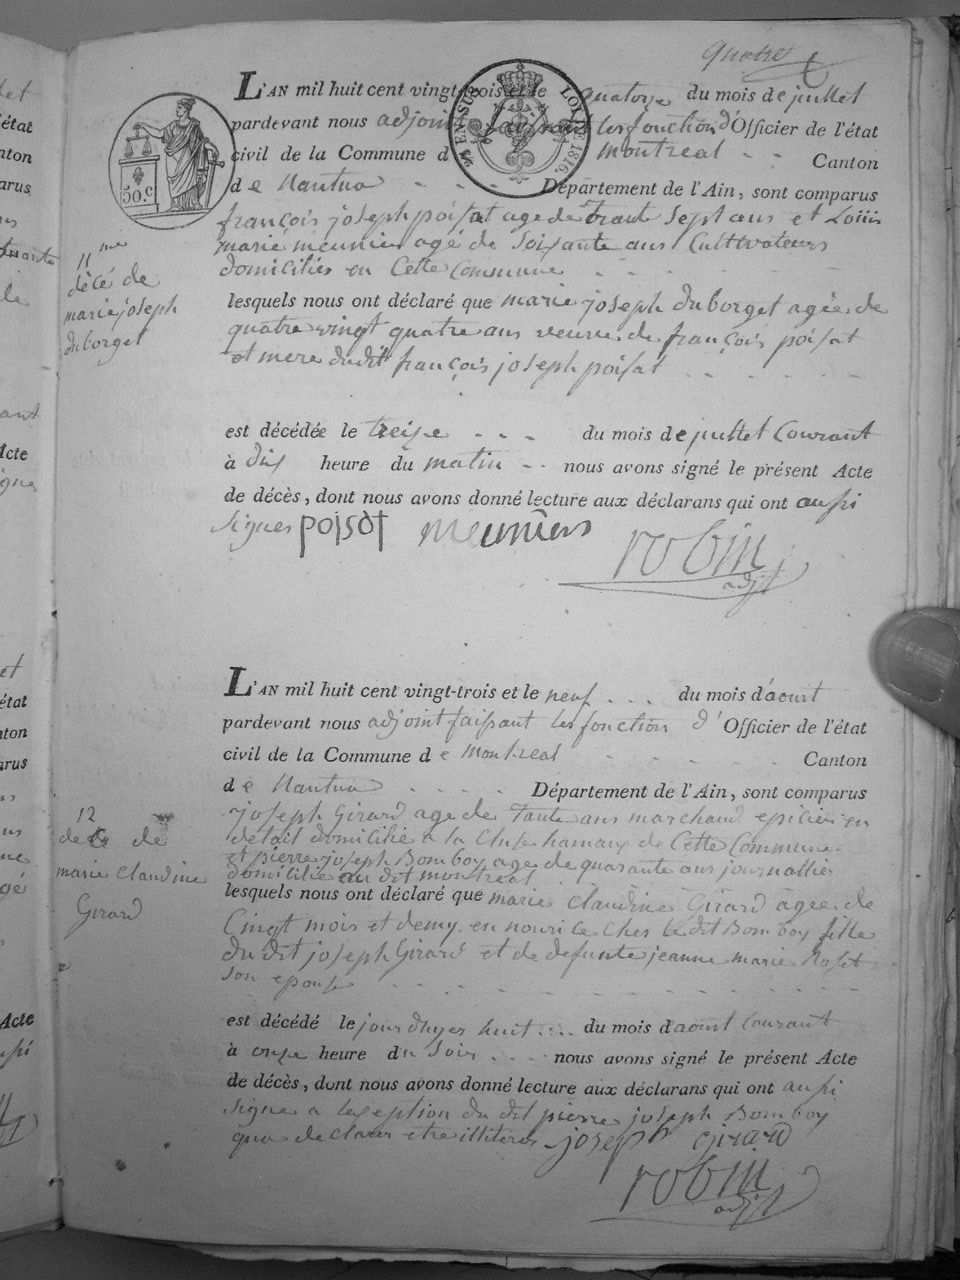 quatre
L'AN mil huit cent vingt-trois et le quatorze du mois de juillet
pardevant nous adjoint faisant les fonction d'Officier de l'état
civil de la Commune d montreal Canton
de Nantua Département de l'Ain, sont comparus
françois joseph poisat age de trante sept ans et Loüis
marie meunier agé de soixante ans Cultivateurs
domiciliés en Cette Commune
lesquels nous ont déclaré que marie joseph duborget agée de
quatre vingt quatre ans veuve de françois poisat
et mere dudit françois joseph poisat
est décédée le treize du mois de juillet Courant
à dix heure du matin nous avons signé le présent Acte
de décès, dont nous avons donné lecture aux déclarans qui ont aussi
signes poisat meuniers
robin
adjt
11me
décé de
marie joseph
duborget
50.c
EN SUS LOI DE 1816.
L'AN mil huit cent vingt-trois et le neuf du mois d'aoust
pardevant nous adjoint faisant les fonction d'Officier de l'état
civil de la Commune de montreal Canton
de Nantua Département de l'Ain, sont comparus
joseph Girard age de Tante ans marchand epicier en
detail domicilié a la Cluse hamaux de Cette Commune
et pierre joseph Bomboy age de quarante ans journallier
domicilie au dit montreal
lesquels nous ont déclaré que marie Claudine Girard agée de
Cingt mois et demy en nourice Ches le dit Bomboy fille
du dit joseph Girard et de defunte jeanne marie Roset
son epouse
est décédé le jour dhyer huit du mois d'aoust Courant
à onze heure du soir nous avons signé le présent Acte
de décès, dont nous avons donné lecture aux déclarans qui ont aussi
signe a lexeption du dit pierre joseph Bomboy
qua declarer etre illiteres joseph girard
robin
adjt
12
de de
marie Claudine
Girard